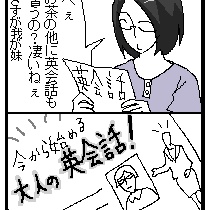 へぇ
お茶の他に英会話も
習うの？凄いねぇ
さすが我が妹
英会話
今から始める
大人の英会話！